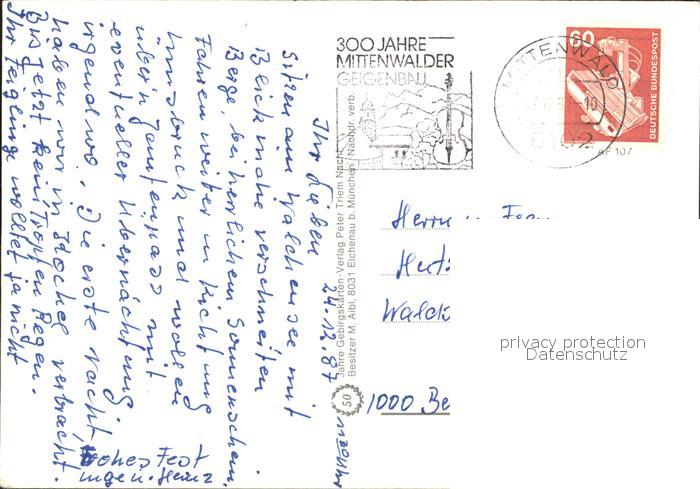 Ihr Lieben
24.12.87
Sitzen am Walchensee mit
Blick nahe verschneiten
Berge bei herrlichem Sonnenschein.
Fahren weiter in Richtung
Innsbruck und wollen
übern Zenzenpass mit
eventueller Übernachtung
irgendwo. Die erste Nacht
haben wir in Kochel verbracht.
Bis jetzt kein Tropfen Regen.
Ihr Feiglinge wolltet ja nicht
Frohes Fest
Inge u. Heinz
300 JAHRE
MITTENWALDER
GEIGENBAU
MITTENWALD
-10
8102
60
DEUTSCHE BUNDESPOST
AF 107
50
Jahre Gebirgskarten-Verlag Peter Triem Nacht.
Besitzer M. Aibl, 8031 Eichenau b. München / Nachdr. verb.
Herrn u.
1000 Be
privacy protection
Datenschutz